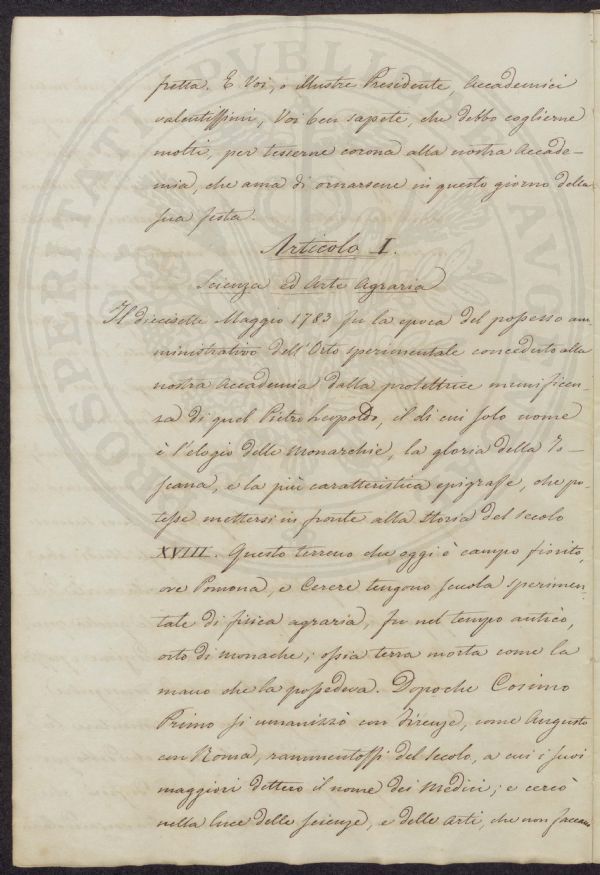 fretta. E Voi, o Illustre Presidente, Accademici
valentissimi, Voi ben sapete, che debbo coglierne
molti, per tesserne corona alla nostra Accade-
mia, che ama di ornarsene in questo giorno della
sua festa.
Articolo I.
Scienza ed Arte Agraria
Il diecisette Maggio 1783 fu la epoca del possesso am-
ministrativo dell'Orto sperimentale conceduto alla
nostra Accademia dalla protettrice munificen-
za di quel Pietro Leopoldo, il di cui solo nome
è l'elogio delle Monarchie, la gloria della To-
scana, e la più caratteristica epigrafe, che po-
tesse mettersi in fronte alla storia del secolo
XVIII. Questo terreno che oggi è campo fiorito,
ove Pomona, e Cerere tengono scuola sperimen-
tale di fisica agraria, fu nel tempo antico,
orto di Monache; ossia terra morta come la
mano che la possedeva. Dopoche Cosimo
Primo si umanizzò con Firenze, come Augusto
con Roma, rammentossi del secolo, a cui i suoi
maggiori dettero il nome dei Medici; e cercò
nella luce delle scienze, e delle Arti, che non facean
PROSPERITATI PVBLICAE AV